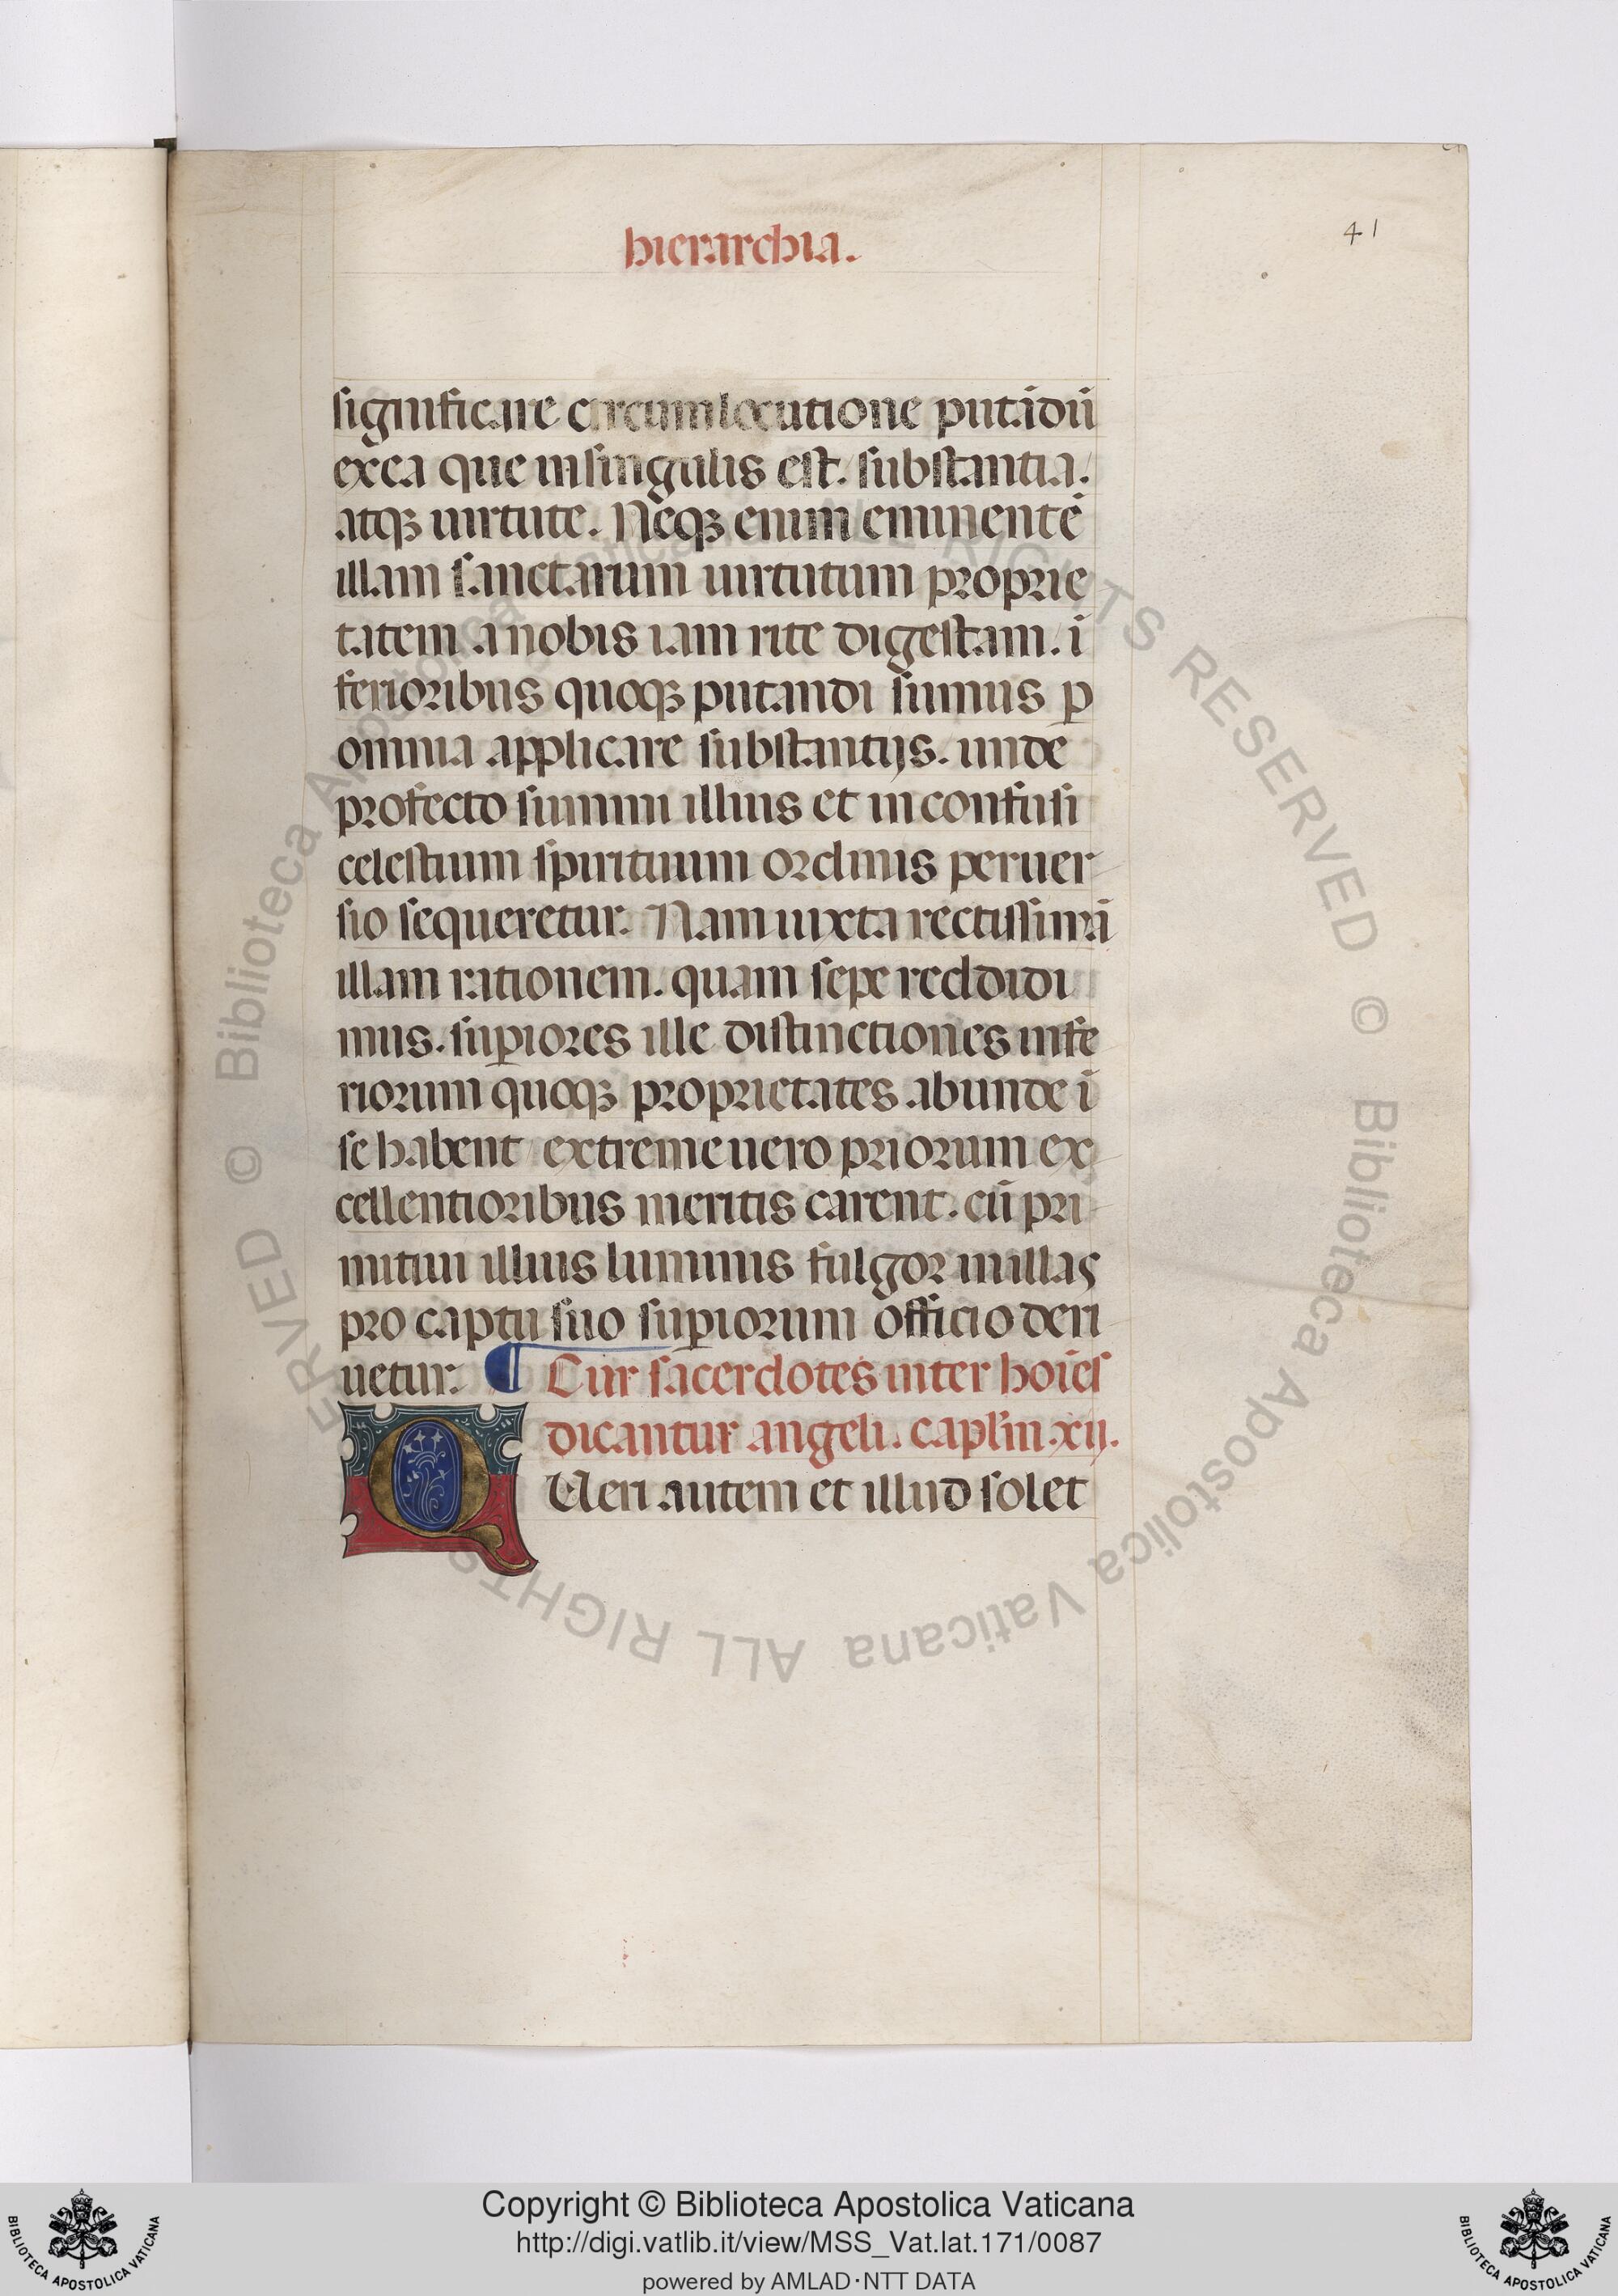 hierarchia.
41
significare circumlocutione putādū
exea que insingulis est. substantia.
atqꝫ uirtute. Neqꝫ enim eminentē
illam sanctarum uirtutum proprie
tatem a nobis iam rite digestam. ī
ferioribus quoqꝫ putandi sumus ꝑ
omnia applicare substantijs. unde
profecto summi illius et inconfusi
celestium spirituum ordinis peruer
sio sequeretur. Nam iuxta rectissimā
illam rationem. quam sepe reddidi
mus. suꝑiores ille distinctiones infe
riorum quoqꝫ proprietates abunde ī
se habent / extreme uero priorum ex
cellentioribus meritis carent. cū pri
mitiui illius luminis fulgor in illas
pro captu suo suꝑiorum officio deri
uetur. ¶ Cur sacerdotes inter hoīes
dicantur angeli. caplm. xij.
QUeri autem et illud solet
© Biblioteca Apostolica Vaticana ALL RIGHTS RESERVED © Biblioteca Apostolica Vaticana ALL RIGHTS RESERVED
Copyright © Biblioteca Apostolica Vaticana
http://digi.vatlib.it/view/MSS_Vat.lat.171/0087
powered by AMLAD·NTT DATA
BIBLIOTECA APOSTOLICA VATICANA
BIBLIOTECA APOSTOLICA VATICANA